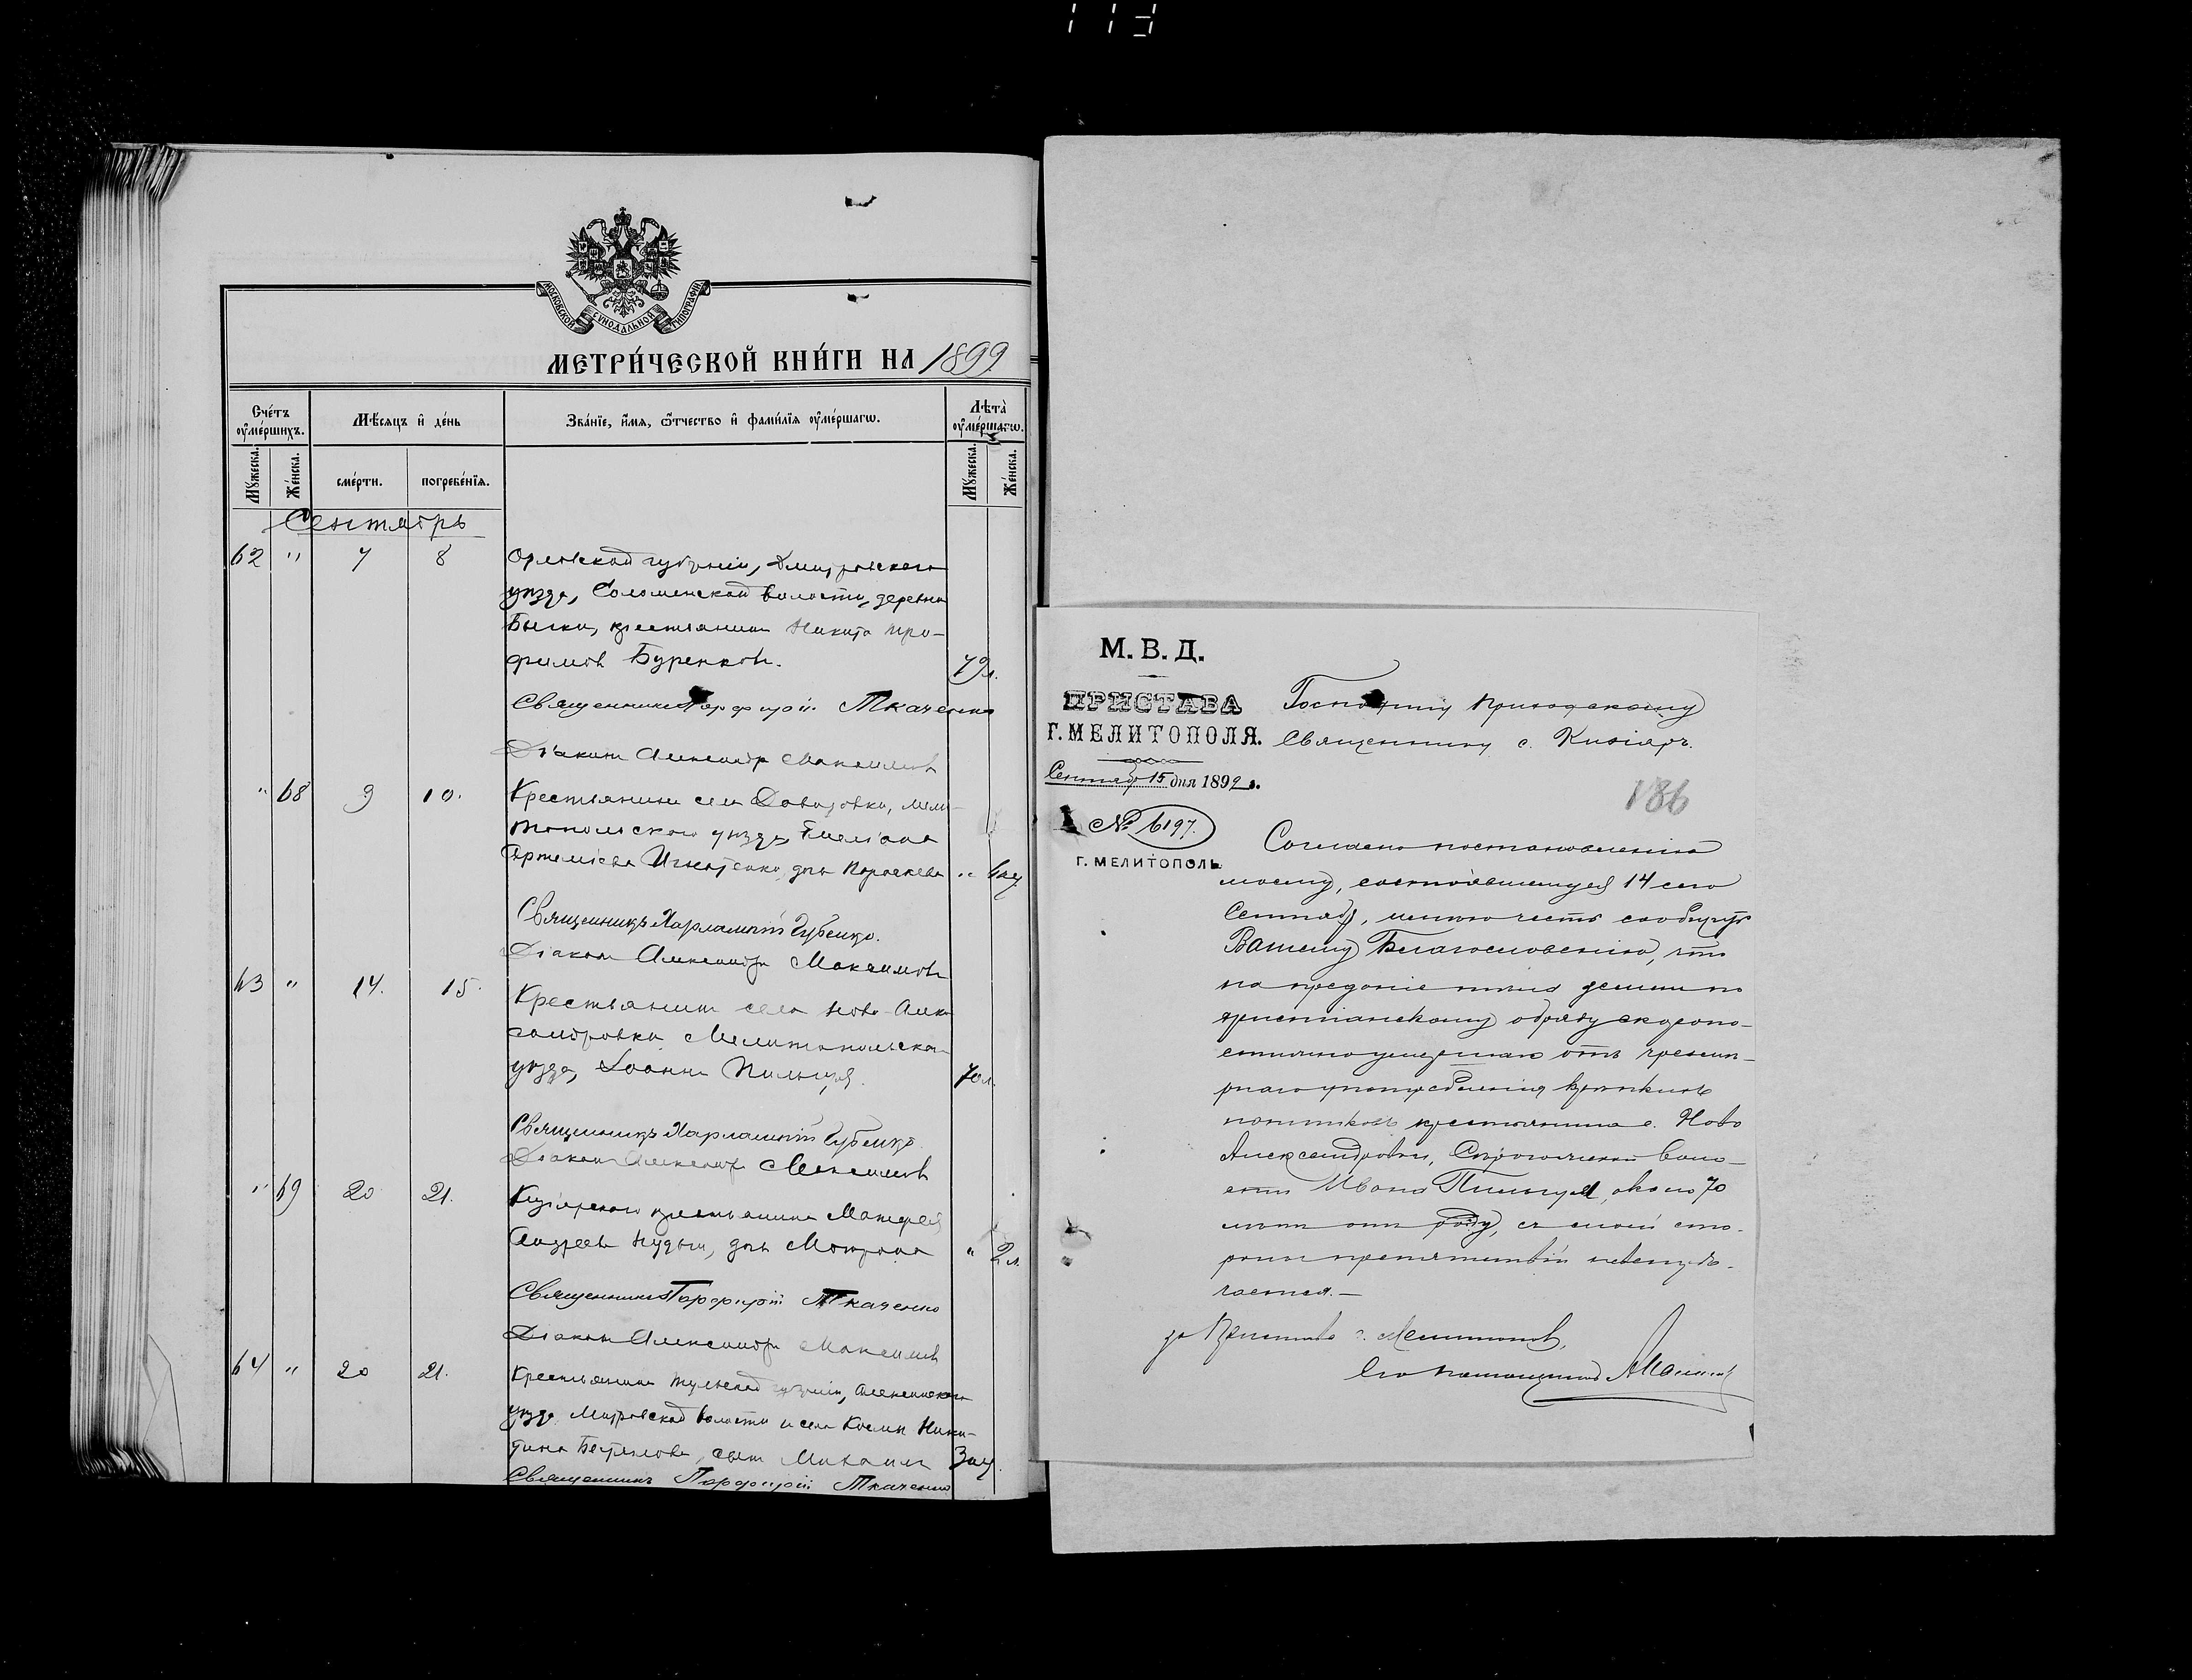 МОСКОВСКОЙ СУНОДАЛЬНОЙ ТИПОГРАФІИ
МЕТРИ́ЧЕСКОЙ КНИ́ГИ НА 1899
Сче́тъ оу҆ме́ршихъ.
Мѣ́сяцъ и҆ де́нь
Зва́нїе, и҆́мя, ѻ҆́тчество и҆ фами́лїя оу҆ме́ршагѡ.
Лѣ́та оу҆ме́ршагѡ.
Му́жеска. Же́нска.
сме́рти. погребе́нїя.
Му́жеска. Же́нска.
Сентябрь
62 " 7 8 Орловской губерніи, Дмитровскаго
уѣзда, Соломенской волости, деревни
Бычки, крестьянинъ Никита Тро-
фимовъ Буренковъ. 79 л.
Священникъ Порфирій Ткаченко
Діаконъ Александръ Максимовъ
" 68 9 10. Крестьянина села Давыдовки, Мели-
топольскаго уѣзда, Емеліана
Артеміева Игнатенко, дочь Параскева "
Священникъ Харлампій Губенко.
Діаконъ Александръ Максимовъ
63 " 14. 15. Крестьянинъ села Ново-Алек-
сандровки Мелитопольскаго
уѣзда, Іоаннъ 70 л.
Священникъ Харлампій Губенко
Діаконъ Александръ Максимовъ
" 69 20 21. Кизіярскаго крестьянина Матфея
Андреева Нудьги, дочь Матрона " 2 л.
Священникъ Порфирій Ткаченко
Діаконъ Александръ Максимовъ
64 " 20 21. Крестьянина Тульской губерніи, Алексинскаго
уѣзда волости и села Космы Ники-
тина сынъ Михаилъ
Священникъ Порфирій Ткаченко
М. В. Д.
ПРИСТАВА
Г. МЕЛИТОПОЛЯ.
Сентяб 15 дня 1899 г.
№ 6197.
Г. МЕЛИТОПОЛЬ
Господину Приходскому
Священнику с. Кизіяръ.
186
Согласно постановленію
моему, состоявшемуся 14 сего
Сентября, имѣю честь сообщить
Вашему Благословенію, что
на преданіе тѣла землѣ по
христіанскому обряду скоропо-
стижно умершаго отъ чрезмѣ-
рнаго употребленія крѣпкихъ
напитковъ крестьянина с. Ново
Александровки, воло-
сти Ивана около 70
лѣтъ отъ роду, съ моей сто-
роны препятствій невстрѣ-
чается.—
за Пристава г. Мелитополя,
Его помощникъ